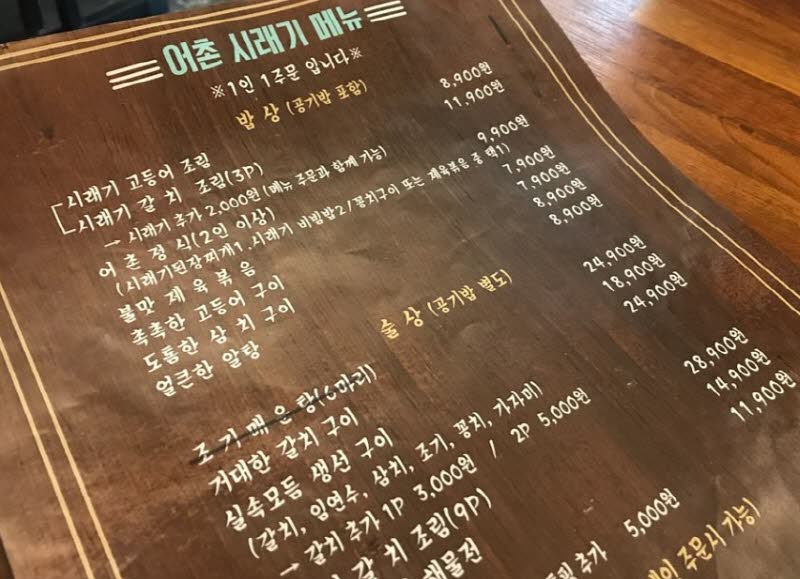 어촌 시래기 메뉴
※1인 1주문 입니다※
밥 상 (공기밥 포함)
시래기 고등어 조림 8,900원
시래기 갈치 조림(3P) 11,900원
→ 시래기 추가 2,000원 (메뉴 주문과 함께 가능)
어촌정식(2인 이상) 9,900원
(시래기된장찌개1, 시래기 비빔밥2/꽁치구이 또는 제육볶음 중 택1)
불맛 제육볶음 7,900원
촉촉한 고등어 구이 7,900원
도톰한 삼치 구이 8,900원
얼큰한 알탕 8,900원
술 상 (공기밥 별도)
조기매운탕(6마리) 24,900원
거대한 갈치 구이 18,900원
실속모듬 생선 구이 24,900원
(갈치, 임연수, 삼치, 조기, 꽁치, 가자미)
→ 갈치 추가 1P 3,000원 / 2P 5,000원
갈치 조림(9P) 28,900원
해물전 14,900원
11,900원
추가 5,000원
주문시 가능)